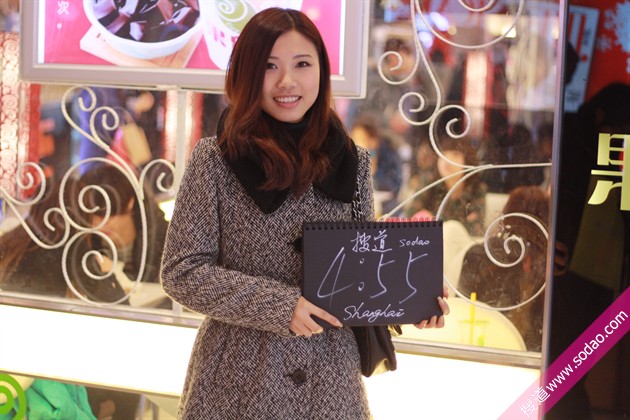 搜道 sodao
4:55
Shanghai
果
搜道 www.sodao.com